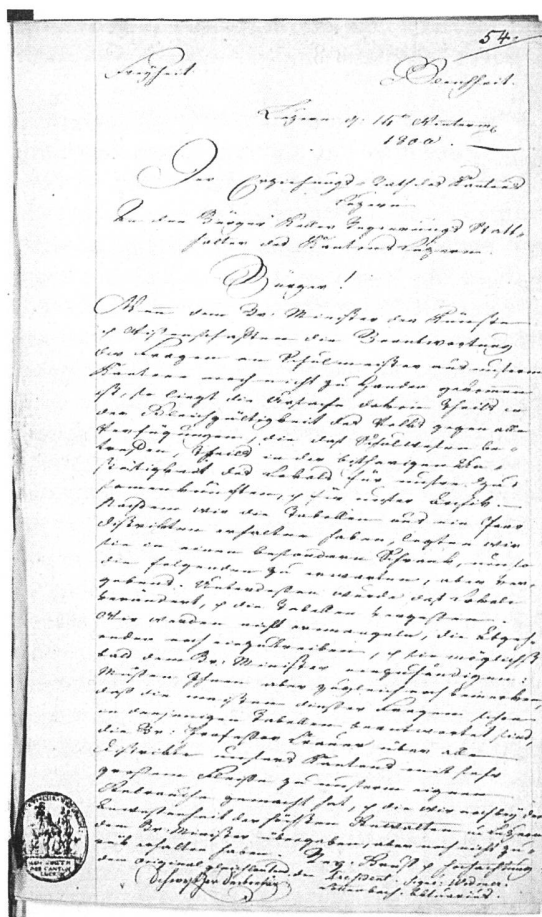 54.
Freyheit. Gleichheit.
Luzern d. 14ten Winterm.
1800.
Der Erziehungs-Rath des Kantons
Luzern
An den Bürger Keller Regierungs Statt-
halter des Kantons Luzern.
Bürger!
Wenn dem Br. Minister der Künsten
& Wissenschaften die Beantwortung
der Fragen an Schulmeister aus unserm
Kanton noch nicht zu Handen gekommen
ist, so liegt die Ursache davon Theils in
der Gleichgültigkeit des Volks gegen alle
Verfügungen, die das Schulwesen be-
treffen, Theils in der bisherigen Un-
stätigkeit des Lokals für unsre Zu-
sammenkünften, & für unser Archiv.
Nachdem wir die Tabellen aus ein Paar
Distrikten erhalten haben, legten wir
sie in einen besondern Schrank, um so
die folgenden zu erwarten, aber ver-
gebens. Unterdessen wurde das Lokale
verändert, & die Tabellen vergessen.
Wir werden nicht ermangeln, die Abgehe-
nden noch einzutreiben, & sie möglichst
bald dem Br. Minister einzuhändigen:
Müssen Ihnen aber zugleich noch bemerken,
daß die meisten dieser Fragen schon
in denjenigen Tabellen beantwortet sind,
die Br. Professor Krauer über alle
Distrikte unsers Kantons mit sehr
großem Fleiße zu unserm eignen
Gebrauche gemacht hat, & die wir noch bey der
Anwesenheit der
dem Br. Minister übergeben, aber noch nicht zu-
rük erhalten haben. Rep. Gruß & Hochachtung
dem Original gleichlautend Der Präsident, Sign: Widmer.
Sekretär